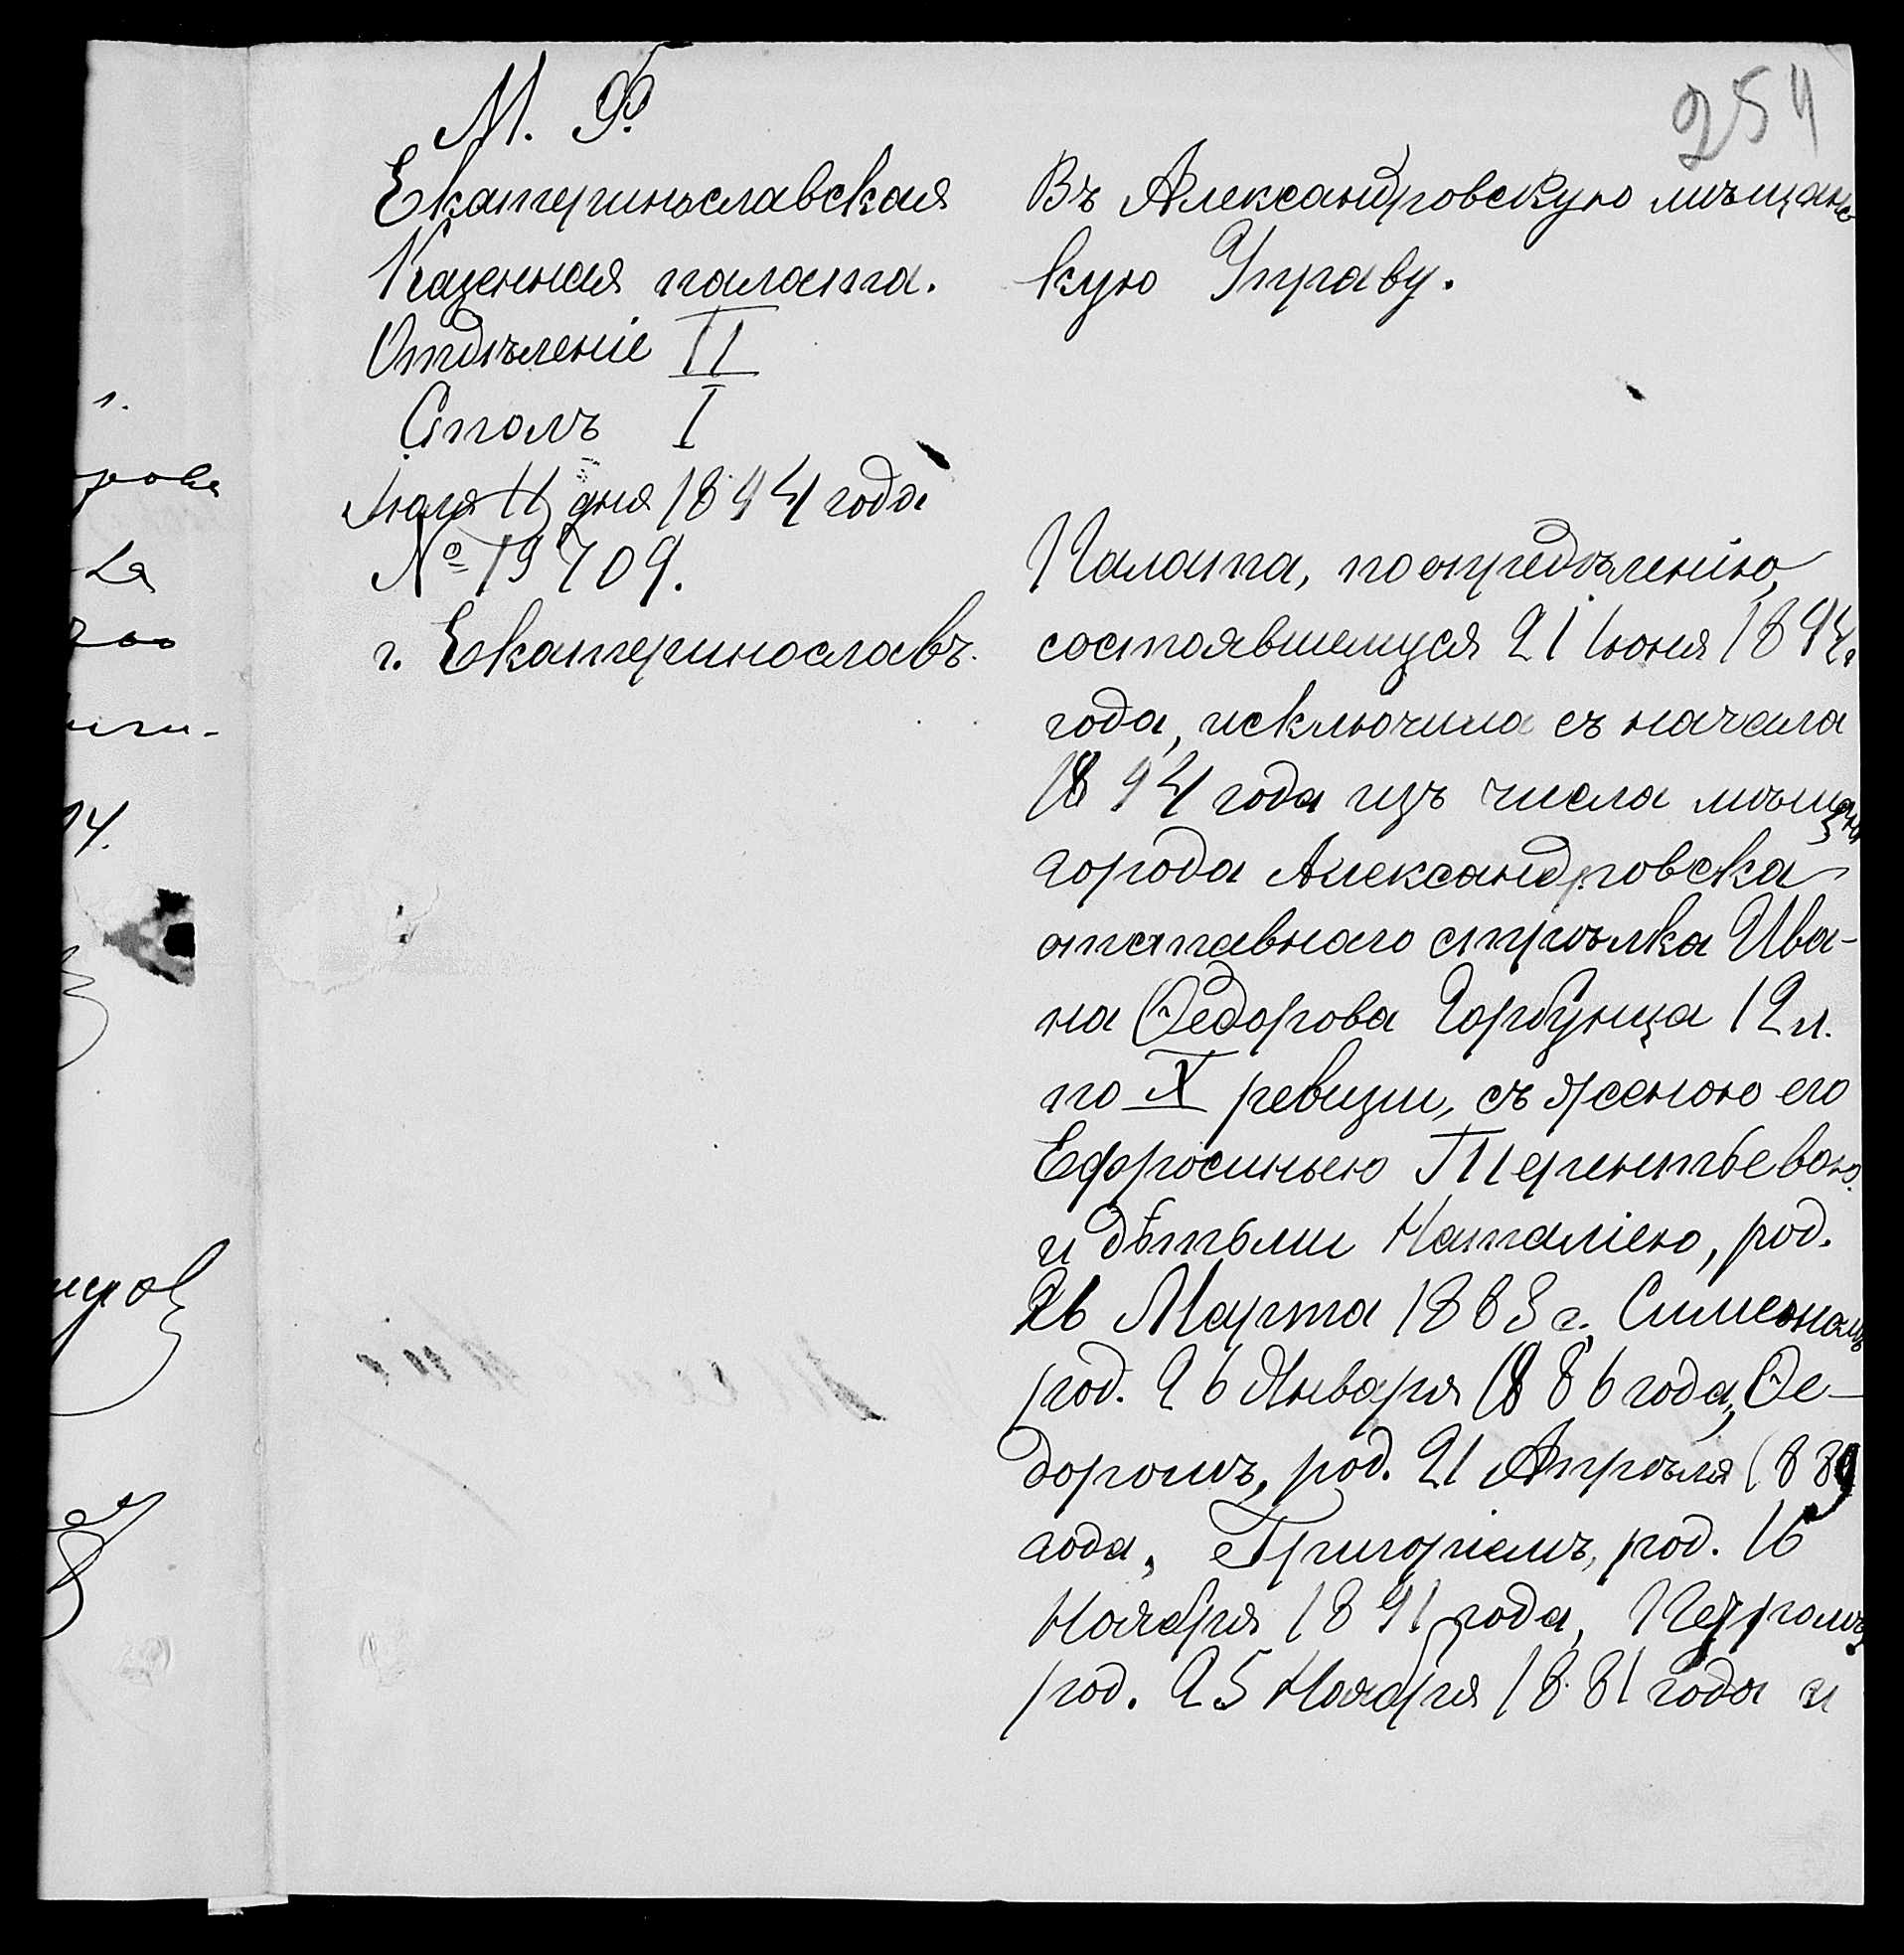 254
М. Ф.
Екатеринославская
Казенная палата.
Отдѣленіе II
Столъ I
Июля 11 дня 1894 года
№ 19709.
г. Екатеринославъ.
Въ Александровскую мѣщанс-
кую Управу.
Палата, по опредѣленію,
состоявшемуся 21 Іюня 1894
года, исключила съ начала
1894 года изъ числа мѣщанъ
города Александровска
отставнаго стрѣлка Ива-
на Ѳедорова Горбунца 12 л.
по X ревизіи, съ женою его
Ефросиньею Терентьевою
и дѣтьми Наталіею, род.
26 Марта 1883 г., Симеономъ
род. 26 Января 1886 года, Ѳе-
доромъ, род. 21 Апрѣля 1889
года, Григоріемъ, род. 16
Ноября 1891 года, Петромъ
род. 25 Ноября 1881 года и